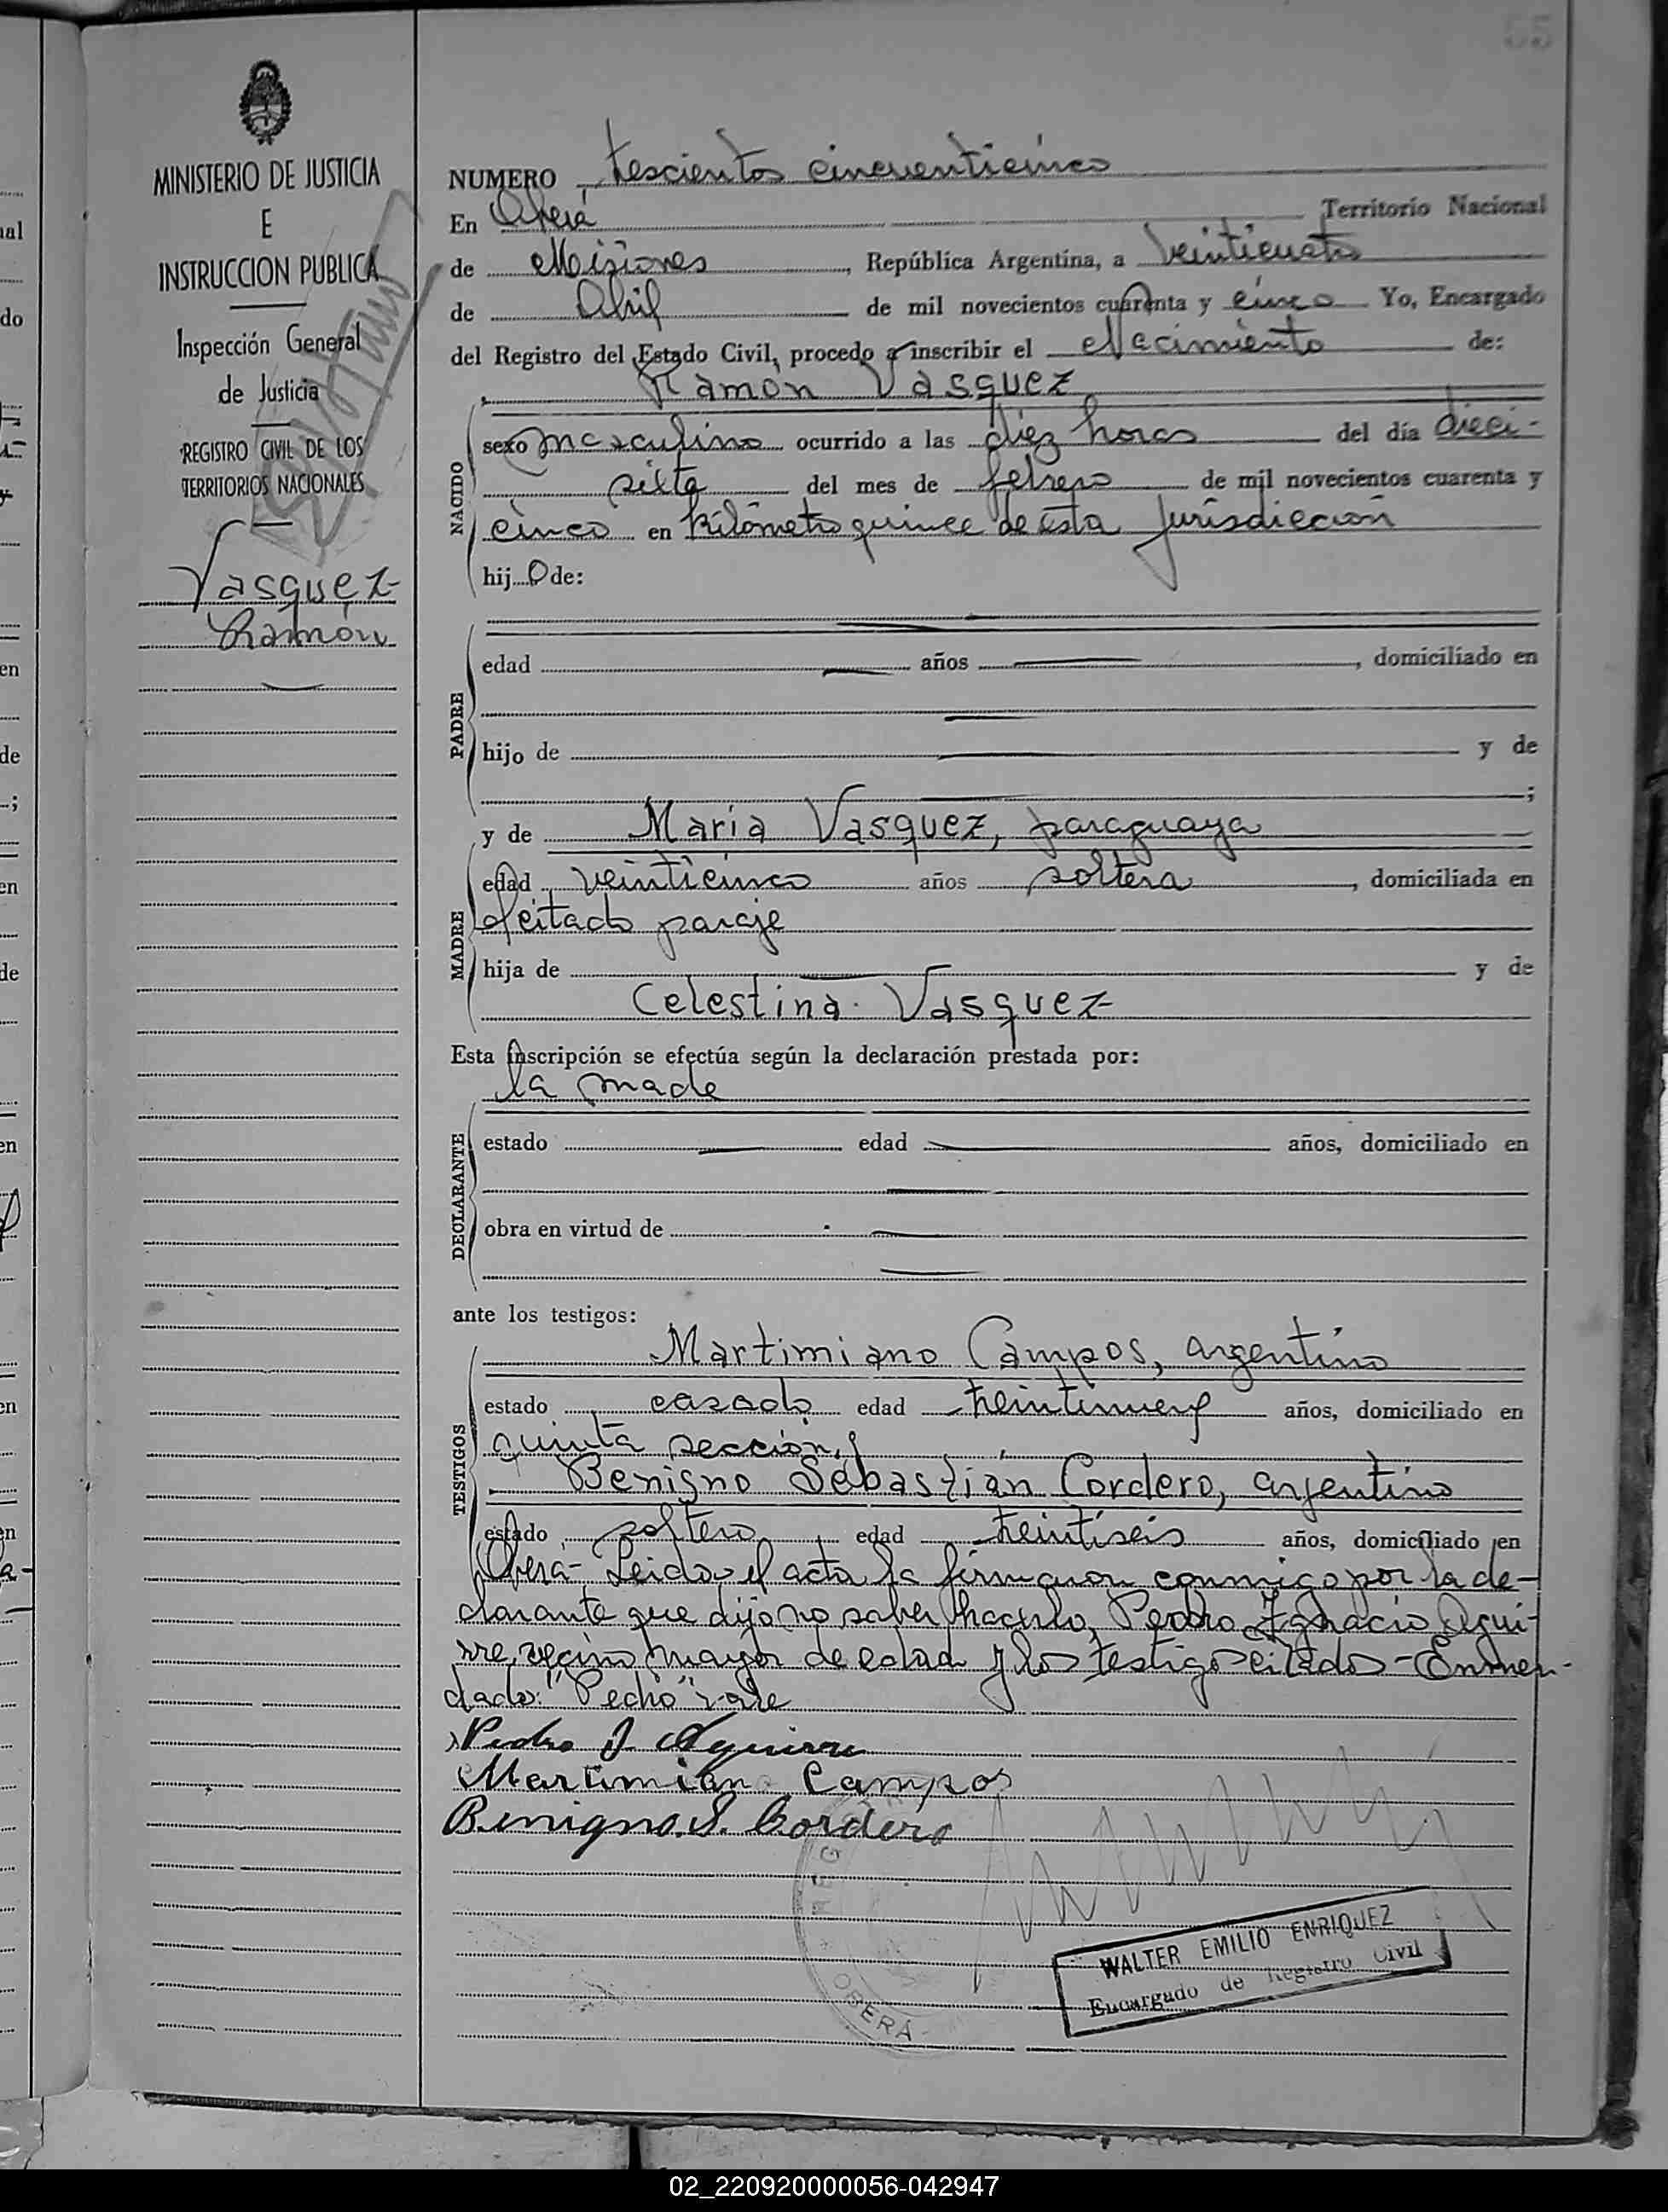 55
MINISTERIO DE JUSTICIA
E
INSTRUCCION PUBLICA
Inspección General
de Justicia
REGISTRO CIVIL DE LOS
TERRITORIOS NACIONALES
Vasquez
Ramón
NUMERO tescientos cincuenticinco
En Oberá Territorio Nacional
de Misiones, República Argentina, a veinticuatro
de Abril de mil novecientos cuarenta y cinco Yo, Encargado
del Registro del Estado Civil, procedo a inscribir el Nacimiento de:
Ramón Vasquez
NACIDO
sexo masculino ocurrido a las diez horas del día dieci-
siete del mes de febrero de mil novecientos cuarenta y
cinco en kilómetro quince de esta jurisdicción
hijo de:
PADRE
edad años, domiciliado en
hijo de y de
;
y de María Vasquez, paraguaya
MADRE
edad veinticinco años soltera, domiciliada en
el citado paraje
hija de y de
Celestina Vasquez
Esta inscripción se efectúa según la declaración prestada por:
la made
DECLARANTE
estado edad años, domiciliado en
obra en virtud de
ante los testigos:
TESTIGOS
Martimiano Campos, argentino
estado casado edad treintinueve años, domiciliado en
quinta sección y
Benigno Sebastián Cordero, argentino
estado soltero edad treintiseis años, domiciliado en
Oberá- Leida el acta la firmaron conmigo por la de-
clarante que dijo no saber hacerlo, Pedro Ignacio Agui-
rre, vecino mayor de edad y los testigos citados - Enmen-
dado: "Pedro" vale
Pedro I. Aguirre
Martimian Campos
Benigno S. Cordero
OBERÁ
WALTER EMILIO ENRIQUEZ
Encargado de Registro Civil
02_220920000056-042947